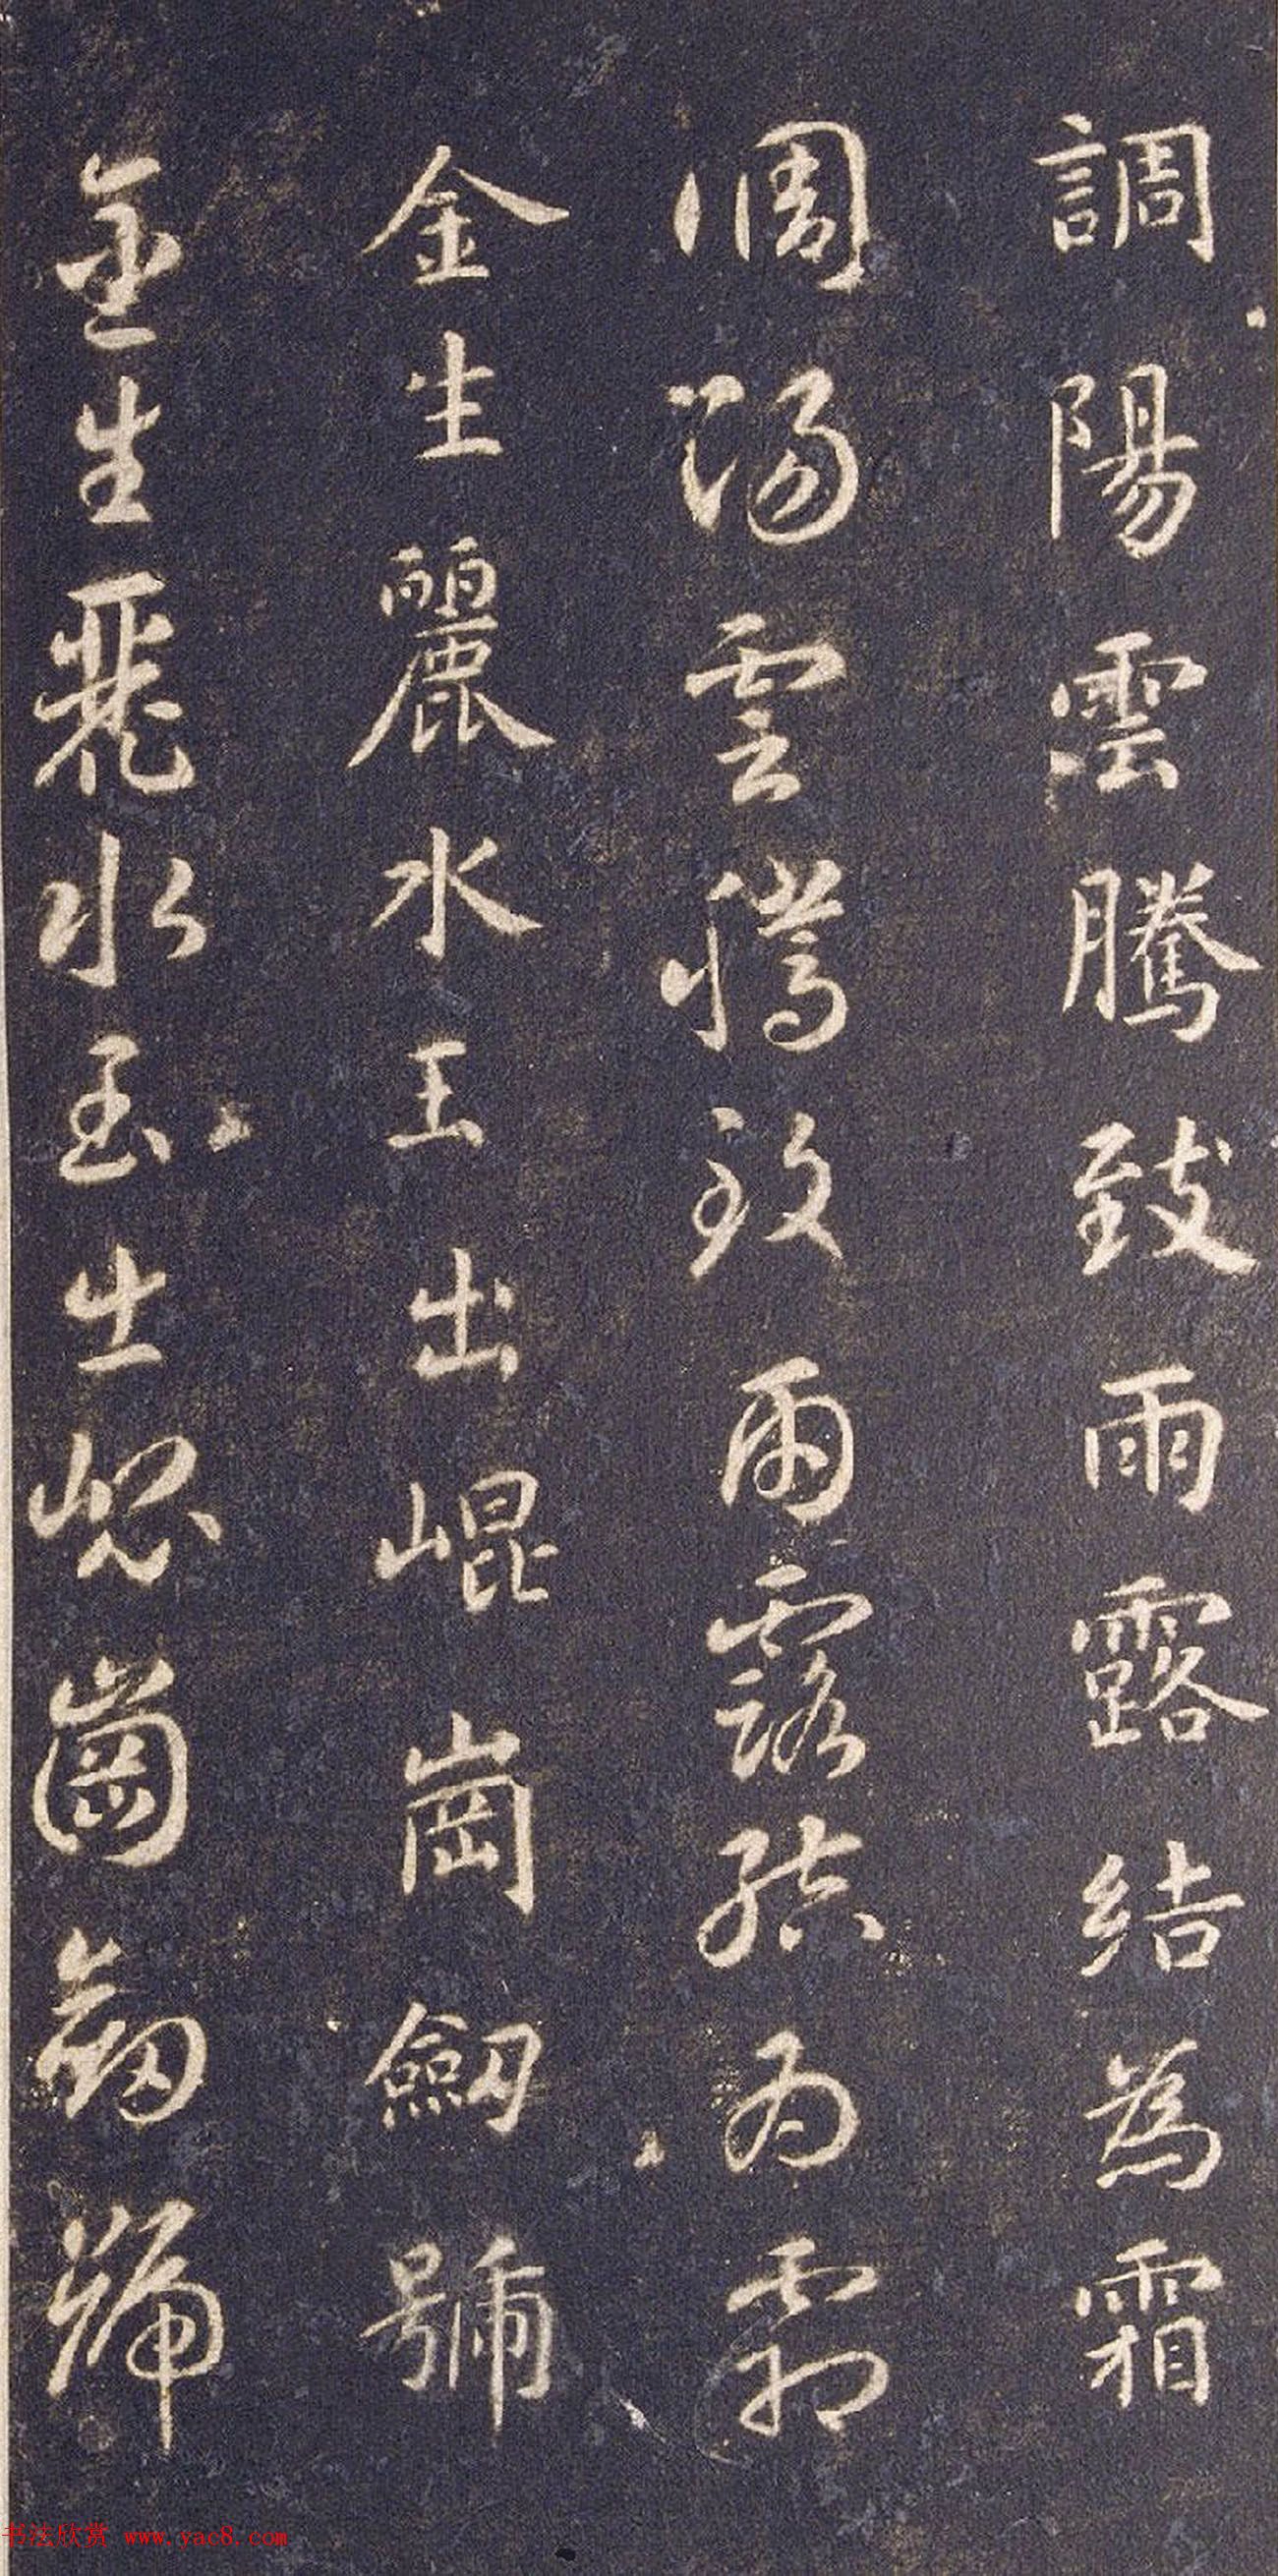 調陽雲騰致雨露結為霜
調陽雲騰致雨露結為霜
金生麗水玉出崐崗劎號
金生麗水玉出崐崗劎號
书法欣赏 www.yac8.com